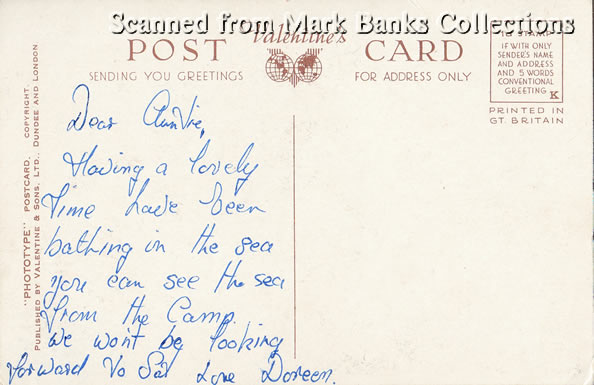 Scanned from Mark Banks Collections
Valentine's
POST CARD
SENDING YOU GREETINGS
FOR ADDRESS ONLY
STAMP
IF WITH ONLY
SENDER'S NAME
AND ADDRESS
AND 5 WORDS
CONVENTIONAL
GREETING K
PRINTED IN
GT. BRITAIN
"PHOTOTYPE" POSTCARD. COPYRIGHT.
PUBLISHED BY VALENTINE & SONS, LTD., DUNDEE AND LONDON
Dear Auntie,
Having a lovely
Time have been
bathing in the sea
you can see the sea
from the Camp.
We wont be looking
forward to Sat Love Doreen.